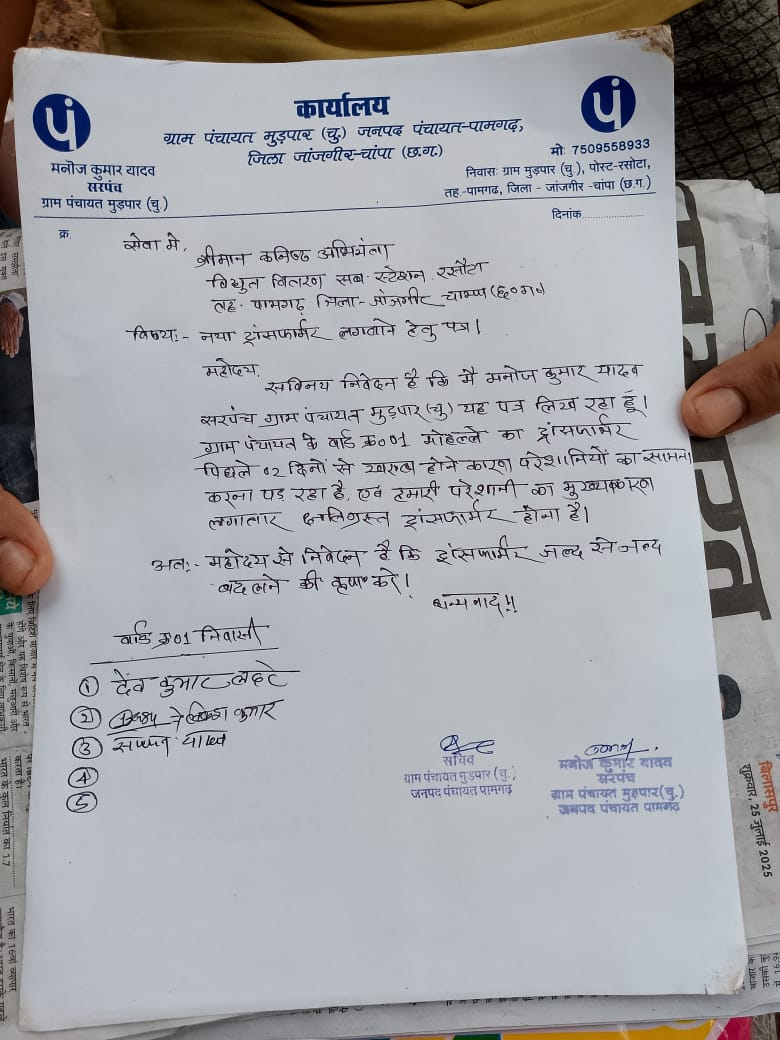 पं
पं
कार्यालय
ग्राम पंचायत मुड़पार (चु.) जनपद पंचायत-पामगढ़,
जिला जांजगीर-चांपा (छ.ग.)
मनोज कुमार यादव
सरपंच
ग्राम पंचायत मुड़पार (चु.)
मो: 7509558933
निवास: ग्राम मुड़पार (चु.), पोस्ट-रसोटा,
तह.-पामगढ़, जिला - जांजगीर -चांपा (छ.ग.)
क्र.
दिनांक.....................
सेवा मे,
श्रीमान कनिष्ठ अभियंता
विद्युत वितरण सब स्टेशन रसौटा
तह. पामगढ़ जिला- जांजगीर चाम्पा (छ०ग०)
विषय:- नया ट्रांसफार्मर लगवाने हेतु पत्र।
महोदय,
सविनय निवेदन है कि मै मनोज कुमार यादव
सरपंच ग्राम पंचायत मुड़पार (चु) यह पत्र लिख रहा हूँ।
ग्राम पंचायत के वार्ड क्र०01 मोहल्ले का ट्रांसफार्मर
पिछले 02 दिनों से खराब होने कारण परेशानियों का सामना
करना पड़ रहा है, एवं हमारी परेशानी का मुख्य कारण
लगातार क्षतिग्रस्त ट्रांसफार्मर होना है।
अत:- महोदय से निवेदन है कि ट्रांसफार्मर जल्द से जल्द
बदलने की कृपा करे।
धन्यवाद!!
वार्ड क्र01 निवासी
① देव कुमार लहरे
② कुमार
③ यादव
④
⑤
सचिव
ग्राम पंचायत मुड़पार (चु.)
जनपद पंचायत पामगढ़
मनोज कुमार यादव
सरपंच
ग्राम पंचायत मुड़पार(चु.)
जनपद पंचायत पामगढ़
बिलासपुर
शुक्रवार, 25 जुलाई 2025